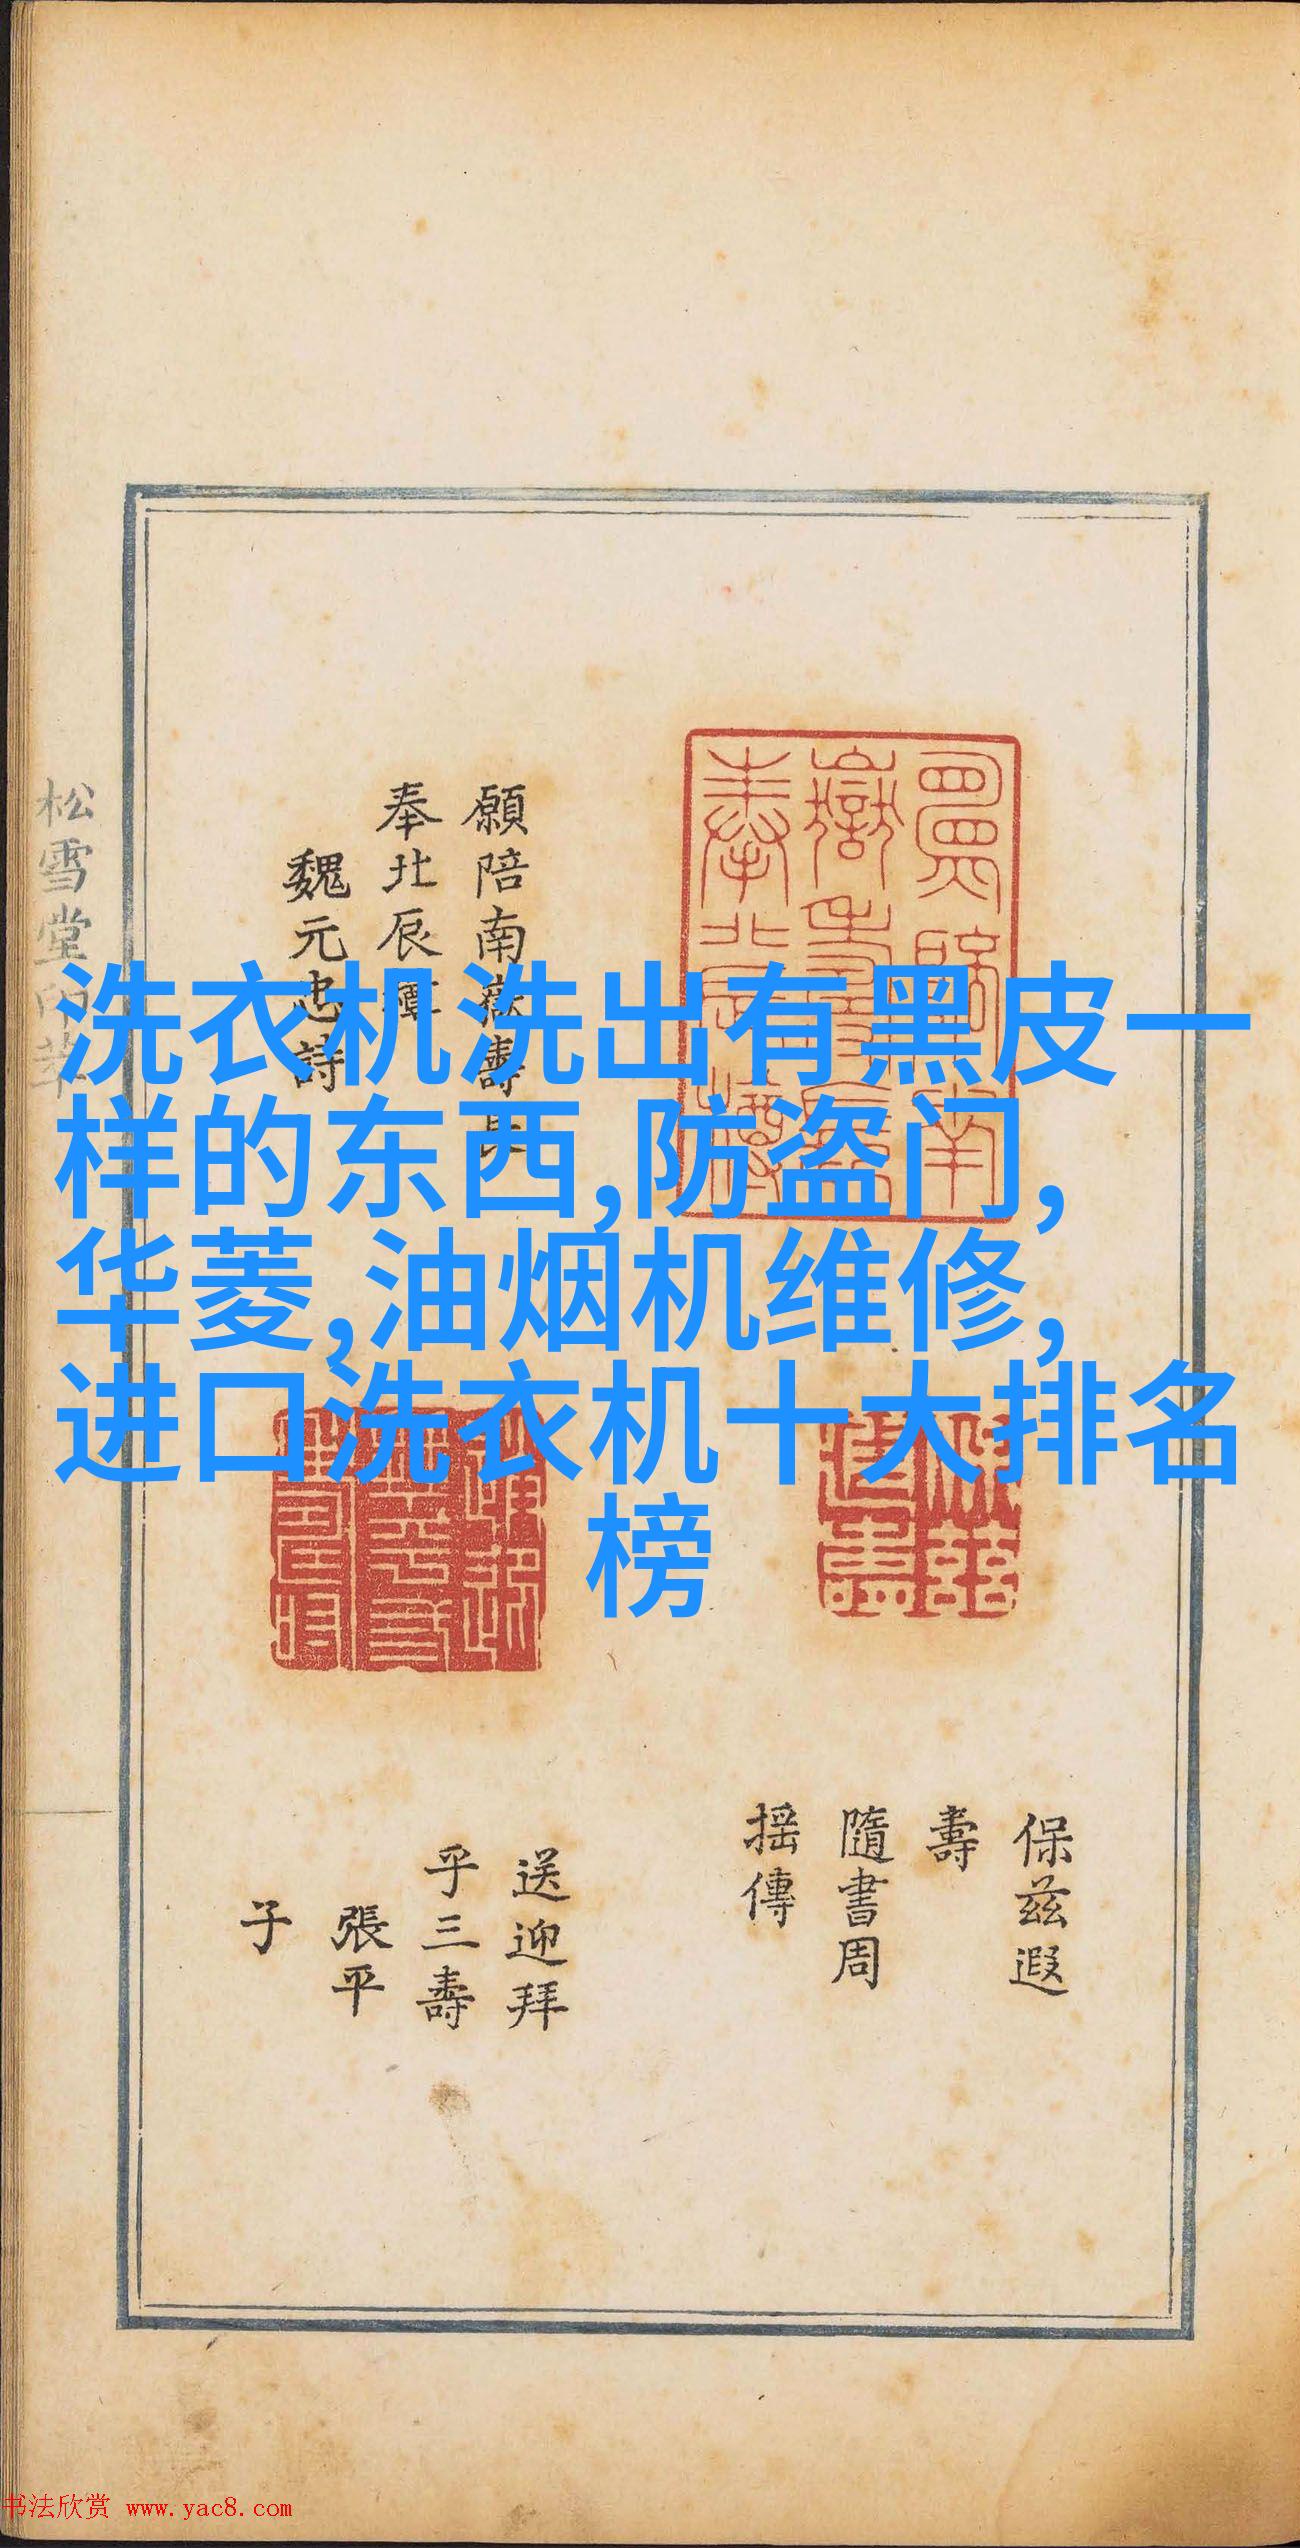 洗衣机洗出有黑皮一
样的东西,防盗门,
华菱,油烟机维修,
进口洗衣机十大排名
榜
願陪南嶽壽
奉北辰
魏元忠詩
松雪堂印萃
保茲遐
壽
隨書周
搖傳
送迎拜
乎三壽
張平
子
书法欣赏 www.yac8.com